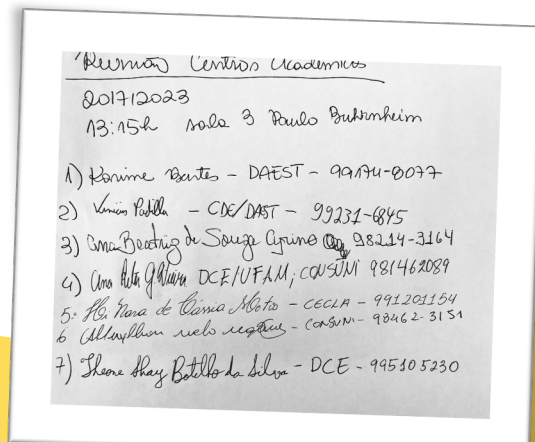 Reunião Centros Acadêmicos
20/7/2023
13:15h sala 3 Paulo Buhrnheim
1) Karime Bentes - DAEST - 99174-8077
2) Vinicius Padilla - CDE/DAST - 99231-6845
3) Ana Beatriz de Souza Cyrino 98214-3164
4) Ana DCE/UFAM; CONSUNI 981462089
5- Nara de Cássia - CECLA - 991201154
6 melo - CONSUNI - 98462-3151
7) Theone Shay Botelho da Silva - DCE - 995105230